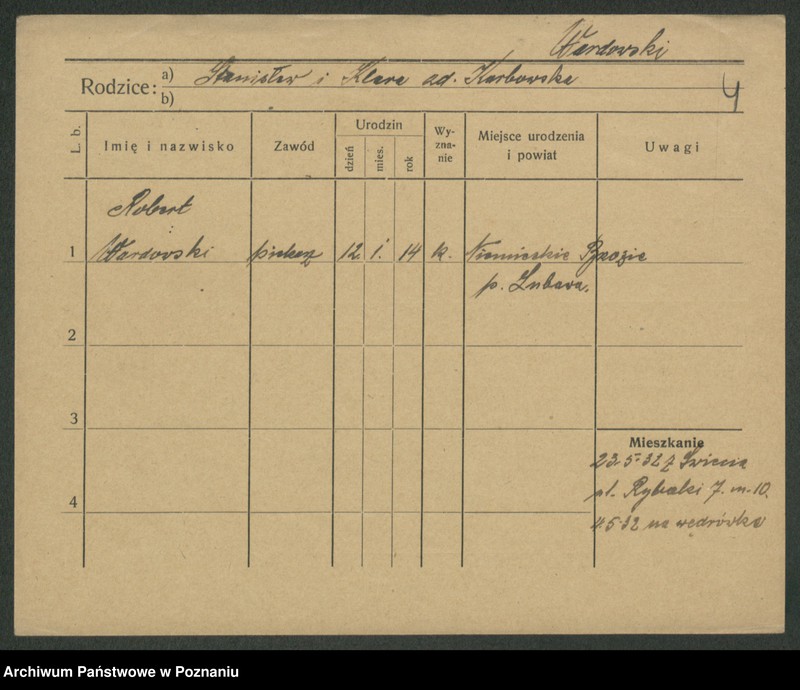 Wardowski
Rodzice: a) Stanisław i Klara ad. Karbowska
b)
4
L. b.
Imię i nazwisko
Zawód
Urodzin
dzień
mies.
rok
Wy-
zna-
nie
Miejsce urodzenia
i powiat
Uwagi
Robert
1 Wardowski piekarz 12. 1. 14 k. Niemieckie Brzozie
p. Lubawa.
2
3
Mieszkanie
23-5-32 z Świecia
pl. Rybaki 7. m. 10.
4
5-32 na wędrówkę
Archiwum Państwowe w Poznaniu